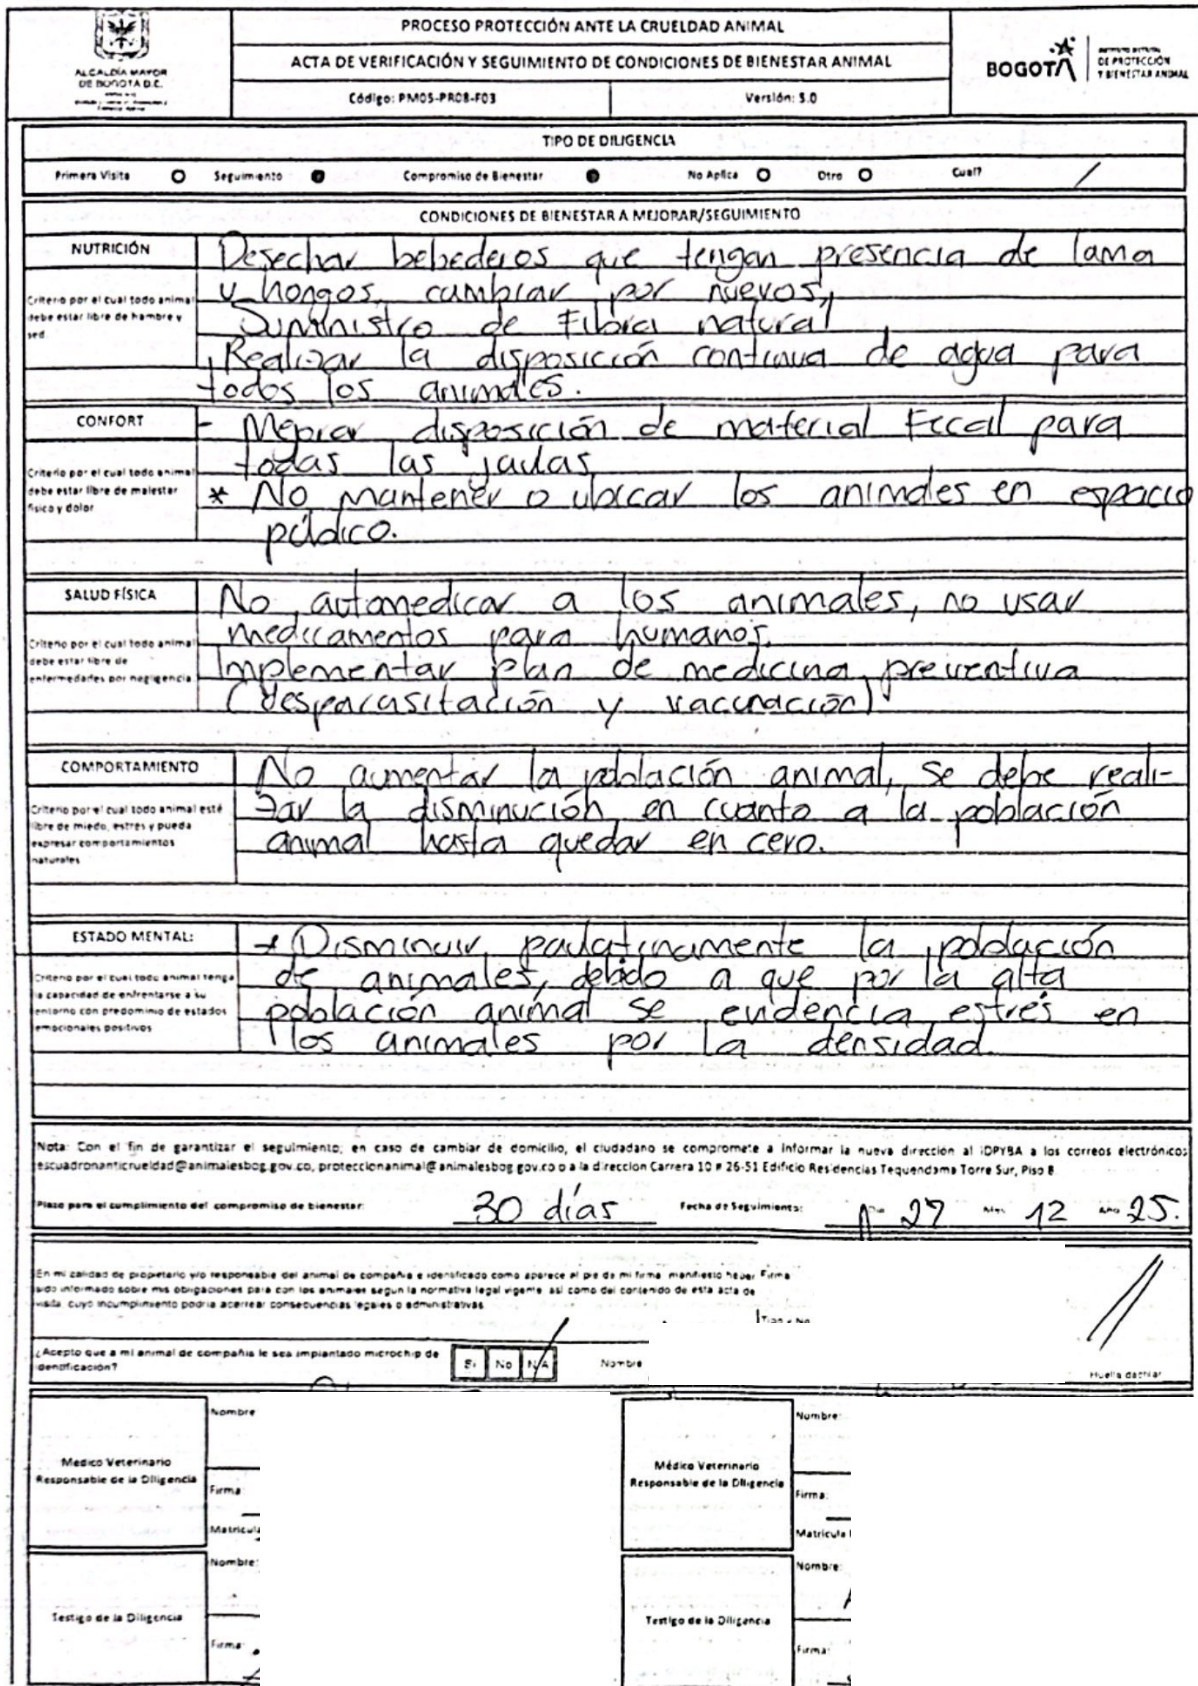 PROCESO PROTECCIÓN ANTE LA CRUELDAD ANIMAL
ALCALDÍA MAYOR
DE BOGOTÁ D.C.
ACTA DE VERIFICACIÓN Y SEGUIMIENTO DE CONDICIONES DE BIENESTAR ANIMAL
Código: PM05-PR08-F03
Versión: 5.0
BOGOTÁ
INSTITUTO DISTRITAL
DE PROTECCIÓN
Y BIENESTAR ANIMAL
TIPO DE DILIGENCIA
Primera Visita Seguimiento Compromiso de Bienestar No Aplica Otro Cual?
CONDICIONES DE BIENESTAR A MEJORAR/SEGUIMIENTO
NUTRICIÓN
Criterio por el cual todo animal
debe estar libre de hambre y
sed
Desechar bebederos que tengan presencia de lama
y hongos, cambiar por nuevos,
Suministro de Fibra natural
, Realizar la disposición continua de agua para
todos los animales.
CONFORT
Criterio por el cual todo animal
debe estar libre de malestar
físico y dolor
- Mejorar disposición de material Fecal para
todas las jaulas
* No mantener o ubicar los animales en espacio
público.
SALUD FÍSICA
Criterio por el cual todo animal
debe estar libre de
enfermedades por negligencia
No automedicar a los animales, no usar
medicamentos para humanos.
Implementar plan de medicina preventiva
(desparasitación y vacunación)
COMPORTAMIENTO
Criterio por el cual todo animal esté
libre de miedo, estrés y pueda
expresar comportamientos
naturales
No aumentar la población animal, se debe reali-
zar la disminución en cuanto a la población
animal hasta quedar en cero.
ESTADO MENTAL:
Criterio por el cual todo animal tenga
la capacidad de enfrentarse a su
entorno con predominio de estados
emocionales positivos
* Disminuir paulatinamente la población
de animales, debido a que por la alta
población animal se evidencia estrés en
los animales por la densidad.
Nota: Con el fin de garantizar el seguimiento; en caso de cambiar de domicilio, el ciudadano se compromete a informar la nueva dirección al IDPYBA a los correos electrónicos
escuadronanticrueldad@animalesbog.gov.co, proteccionanimal@animalesbog.gov.co o a la direccion Carrera 10 # 26-51 Edificio Residencias Tequendama Torre Sur, Piso 8
Plazo para el cumplimiento del compromiso de bienestar: 30 días Fecha de Seguimiento: Día 27 Mes 12 Año 25.
En mi calidad de propietario y/o responsable del animal de compañía e identificado como aparece al pie de mi firma manifiesto haber
sido informado sobre mis obligaciones para con los animales segun la normativa legal vigente, así como del contenido de esta acta de
visita, cuyo incumplimiento podria acarrear consecuencias legales o administrativas
Firma
¿Acepto que a mi animal de compañía le sea implantado microchip de
identificación?
Si No N/A
Nombre
Huella dactilar
Médico Veterinario
Responsable de la Diligencia
Nombre
Firma:
Matricula
Médico Veterinario
Responsable de la Diligencia
Nombre:
Firma:
Matricula
Testigo de la Diligencia
Nombre:
Firma:
Testigo de la Diligencia
Nombre:
Firma: